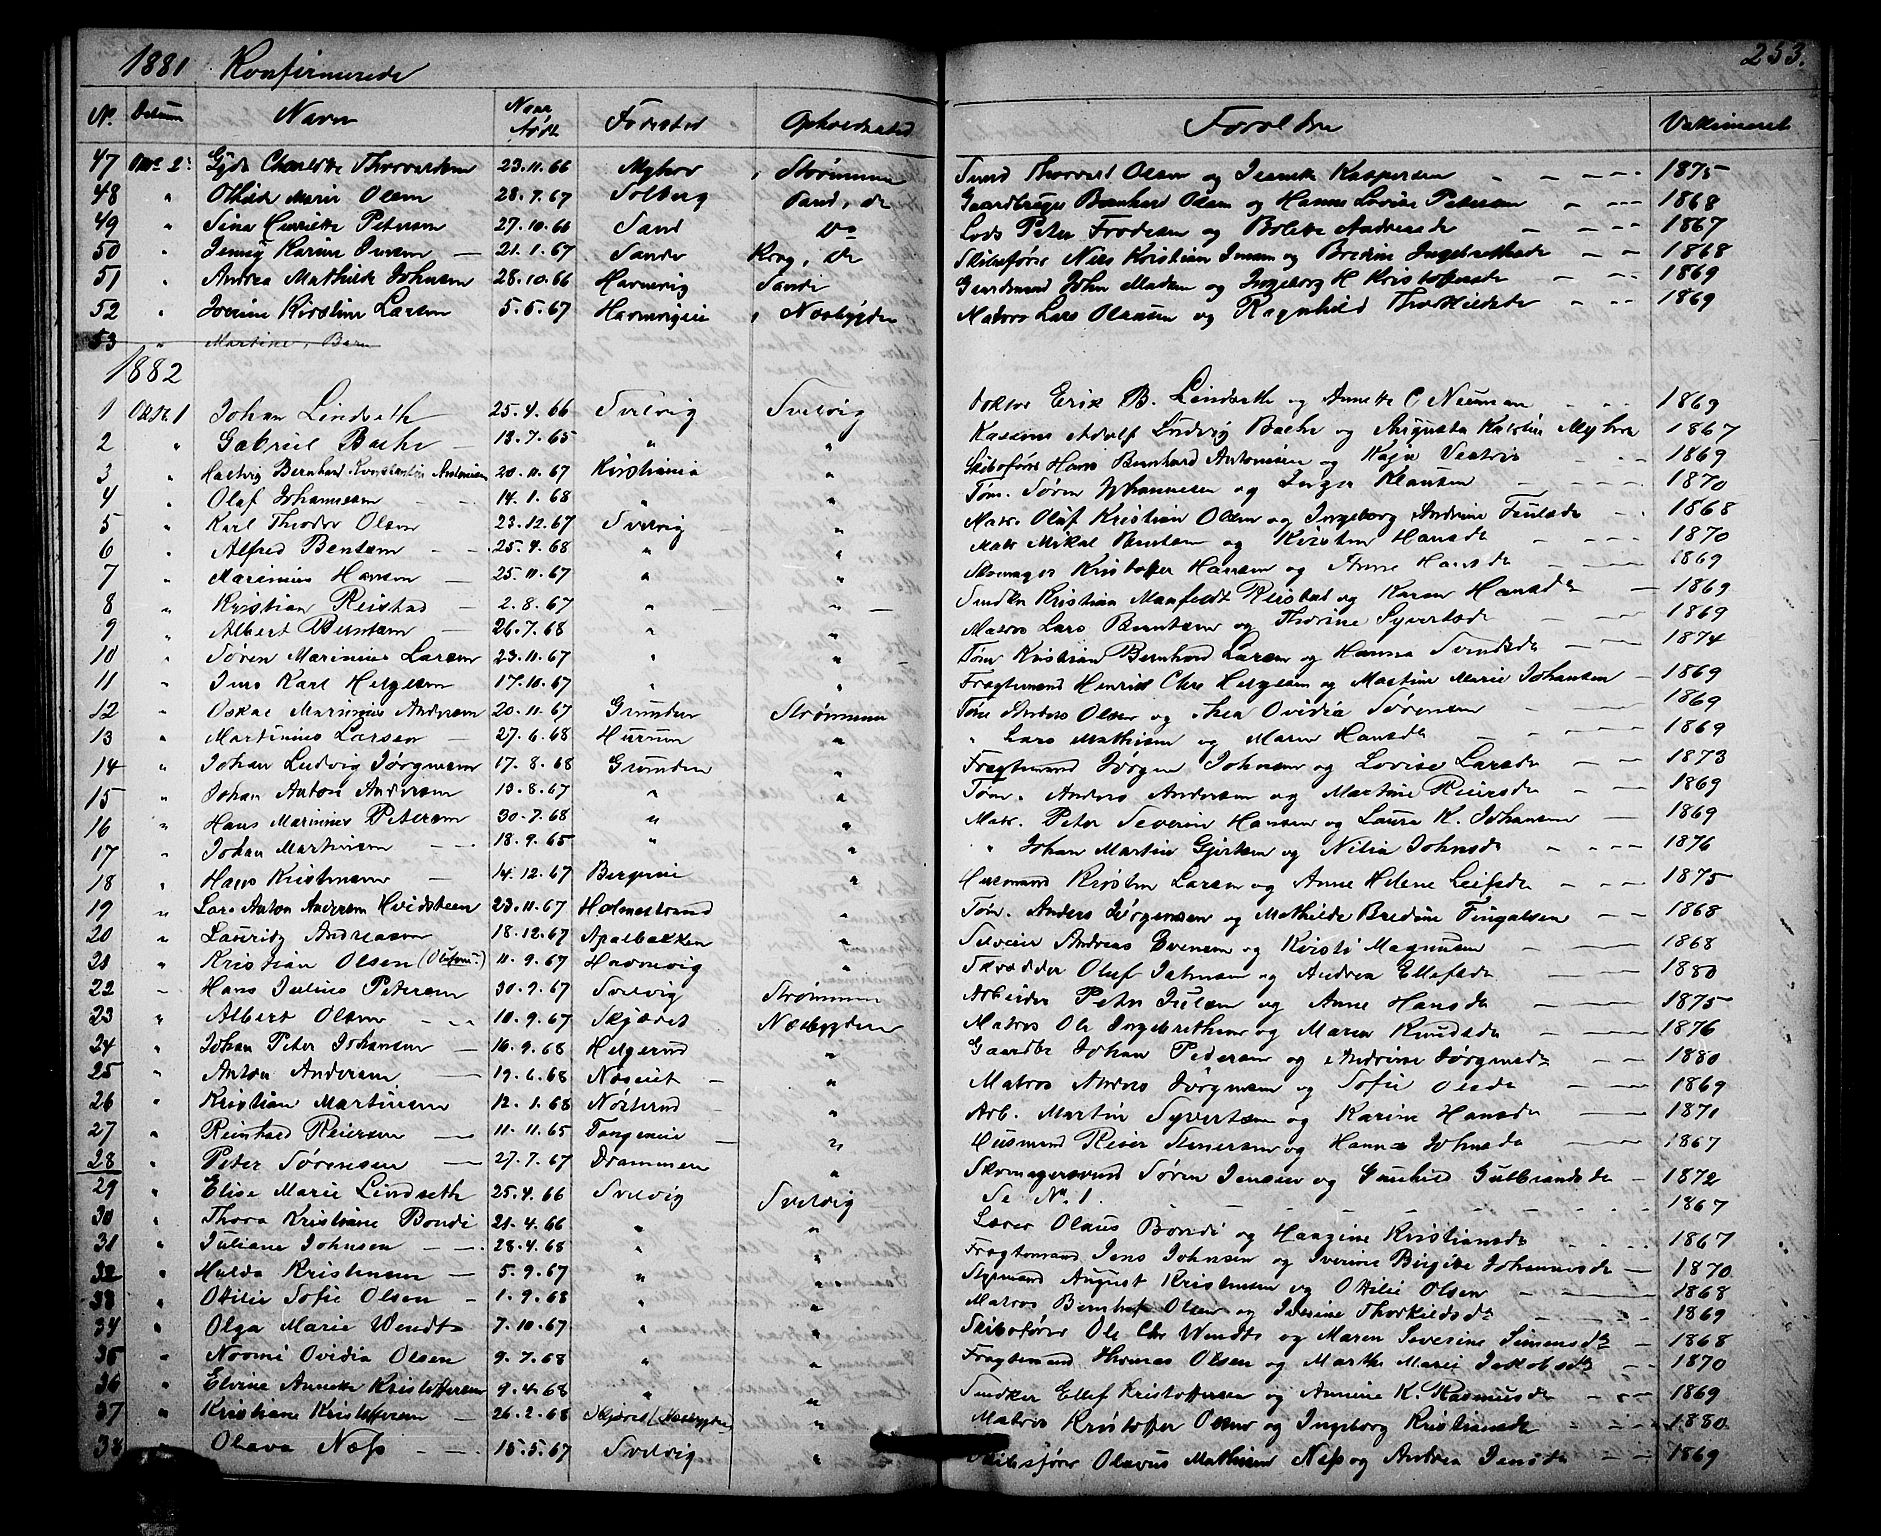 1881 Konfirmerede 253.
N. Datum Navn Naar født Fødested Opholdssted Forældre Vaksineret
47 23.11.66 Strømmen Svend Thorvard Olsen og Kaspersen 1875
48 " Othilde Marie Olsen 28.7.67 Solberg Sand, do Gaardbruger Bernhard Olsen og Hanna Lovise Petersen 1868
49 " Sina Henriette Petersen 27.10.66 Sand Do Lods Peter Frodesen og Bolette Andreasdr 1867
50 " Jenny Karine Jensen 21.1.67 Sande Krog, do Skibsfører Nils Kristian Jensen og Bredine Ingebrethsdr 1868
51 " Andrea Mathilde Johnsen 28.10.66 Havnevig Sande Gaardmand John Madsen og Ingeborg H Kristoffersdr 1869
52 " Josine Kirstine Larsen 5.5.67 Nesbygden Matros Lars Olausen og Ragnhild Thorkildsdr 1869
53 " Martine, Bern
1882
1 Oktbr 1 Johan Lindseth 25.4.66 Svelvig Svelvig Doktor Erik B. Lindseth og Annette C Neuman 1869
2 " Gabriel Bache 18.7.65 " " Adolf Ludvig Bache og Augusta Katrine Myhre 1867
3 " Bernhard Konstantin Antonisen 20.11.67 Kristiania " Skibsfører Hans Bernhard Antonisen og Kaja 1869
4 " Olaf Johannesen 14.1.68 " " Tøm. Søren Johannesen og Inger Klausen 1870
5 " Karl Theodor Olsen 23.12.67 Svelvig " Matr. Oluf Kristian Olsen og Ingeborg Andrine 1868
6 " Alfred Bentsen 25.4.68 " " Matr Mikal Berntsen og Kirsten Hansdr 1870
7 " Marinius Hansen 25.11.67 " " Skomager Kristoffer Hansen og Anne Hansdr 1869
8 " Kristian Reistad 2.8.67 " " Snedker Kristian Manfeldt Reistad og Karen Hansdr 1869
9 " Albert Berntsen 26.7.68 " " Matros Lars Berntsen og Thorine Syvertsdr 1869
10 " Søren Marinius Larsen 23.11.67 " " Tøm Kristian Bernhard Larsen og Hanna Svendsdr 1874
11 " Jens Karl Helgesen 17.10.67 " " Fragtemand Henrik Chr Helgesen og Martine Marie Johansen 1869
12 " Oskar Marinius Andersen 20.11.67 Grunden Strømmen Tøm Anders Olsen og Thea Ovidia Sørensen 1869
13 " Martinius Larsen 27.6.68 Hurum " " Lars Mathisen og Maren Hansdr 1869
14 " Johan Ludvig Jørgensen 17.8.68 Grunden " Fragtemand Jørgen Johnsen og Lovise Larsdr 1873
15 " Johan Anton Andersen 10.8.67 " " Tøm. Anders Andersen og Martine Reiersdr 1869
16 " Hans Marinius Petersen 30.7.68 " " Matr. Peter Severin Hansen og Laura K. Johansen 1869
17 " Johan Martinsen 18.9.65 " " " Johan Martin Gjertsen og Nilia Johnsdr 1876
18 " Hans Kristensen 14.12.67 " Husmand Kristen Larsen og Anne Helene Leifsdr 1875
19 " Lars Anton Andersen Hvidsteen 23.11.67 Holmestrand " Tøm. Anders Jørgensen og Mathilde Bredine Fingalsen 1868
20 " Lauritz Andreasen 18.12.67 Apalbakken " Andreas Evensen og Kirsti Magnusen 1868
21 " Kristian Olsen 11.9.67 Havnevig " Skrædder Oluf og Andrea Ellefsdr 1880
22 " Hans Julius Petersen 30.9.67 Svelvig Strømmen Arbeider Peter Julsen og Anne Hansdr 1875
23 " Albert Olsen 10.9.67 Skjæret Nesbygden Matros Ole Ingebrethsen og Maren Knudsdr 1876
24 " Johan Peter Johansen 16.9.68 Helgerud " Gaardbr Johan Pedersen og Andrine Jørgensdr 1880
25 " Anton Andersen 19.6.68 Neseiet " Matros Anders Jørgensen og Sofie Olsdr 1869
26 " Kristian Martinsen 12.1.68 Nøsterud " Arb. Martin Syvertsen og Karine Hansdr 1871
27 " Reinhard Reiersen 11.11.65 Tangeneie " Husmand Reier Stenersen og Hanna Johnsdr 1867
28 " Peter Sørensen 27.7.67 Drammen " Skomagersvend Søren Jensen og Gunhild Gulbrandsdr 1872
29 " Elise Marie Lindseth 25.4.66 Svelvig Svelvig Se No. 1. 1867
30 " Thora Kristiane Bondi 21.4.66 " " Lærer Olaus Bondi og Haagine Kristiansdr 1867
31 " Juliane Johnsen 28.4.68 " " Fragtemand Jens Johnsen og Iverine Birgitte Johannesdr 1870
32 " Hulda Kristensen 5.9.67 " " Styrmand August Kristensen og Otilie Olsen 1868
33 " Otilie Sofie Olsen 1.9.68 " " Matros Olsen og Iverine Thorkildsdr 1869
34 " Olga Marie Wendt 7.10.67 " " Skibsfører Ole Chr Wendt og Maren Severine Simensdr 1868
35 " Noomi Ovidia Olsen 9.7.68 " " Fragtemand Thomas Olsen og Marthe Marie Jakobsdr 1870
36 " Elvine Annette Kristoffersen 9.4.68 " " Snedker Ellef Kristoffersen og Annine K. Rasmusdr 1869
37 " Kristiane Kristoffersen 26.2.68 Skjæret (Nesbygden) " Matros Kristoffer Olsen og Ingeborg Kristiansdr 1880
38 " Olava Næss 15.5.67 Svelvig " Skibsfører Olavus Mathisen Næss og Andrea Jensdr 1869